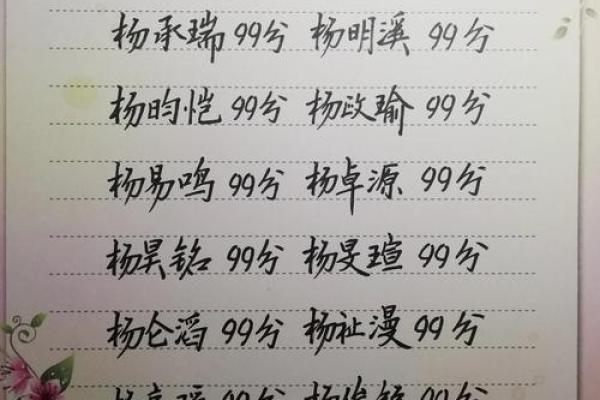 杨承瑞 99分 杨明溪 99分
杨昀恺 99分 杨政瑜 99分
杨易鸣 99分 杨卓源 99分
杨昊铭 99分 杨旻瑄 99分
杨仑滔 99分 杨祉漫 99分
99分 99分